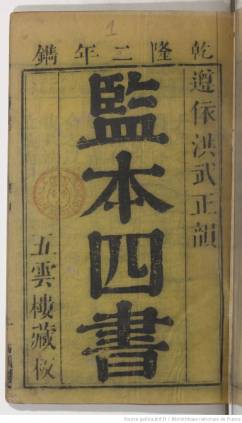 1
乾隆二年鐫
遵依洪武正韻
監本四書
五雲樓藏板
Source gallica.bnf.fr / Bibliothèque nationale de France